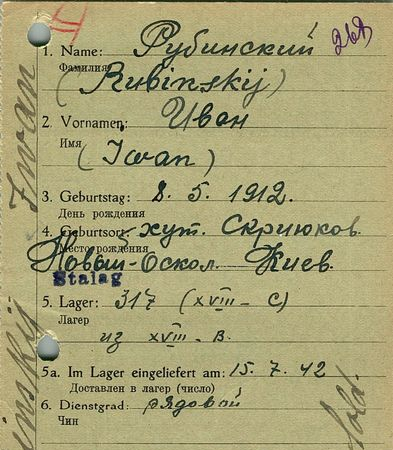 II
268
1. Name: Рубинский
Фамилия
(Rubinskij)
2. Vorname: Иван
Имя
(Iwan)
3. Geburtstag: 8. 5. 1912.
День рождения
4. Geburtsort: хут. Скрюков
Место рождения
Новый-Оскол. Киев.
Stalag
5. Lager: 317 (XVIII - C)
Лагер
из XVIII - B.
5a. Im Lager eingeliefert am: 15. 7. 42
Доставлен в лагер (число)
6. Dienstgrad: рядовой
Чин
Iwan
inskij
Sold.